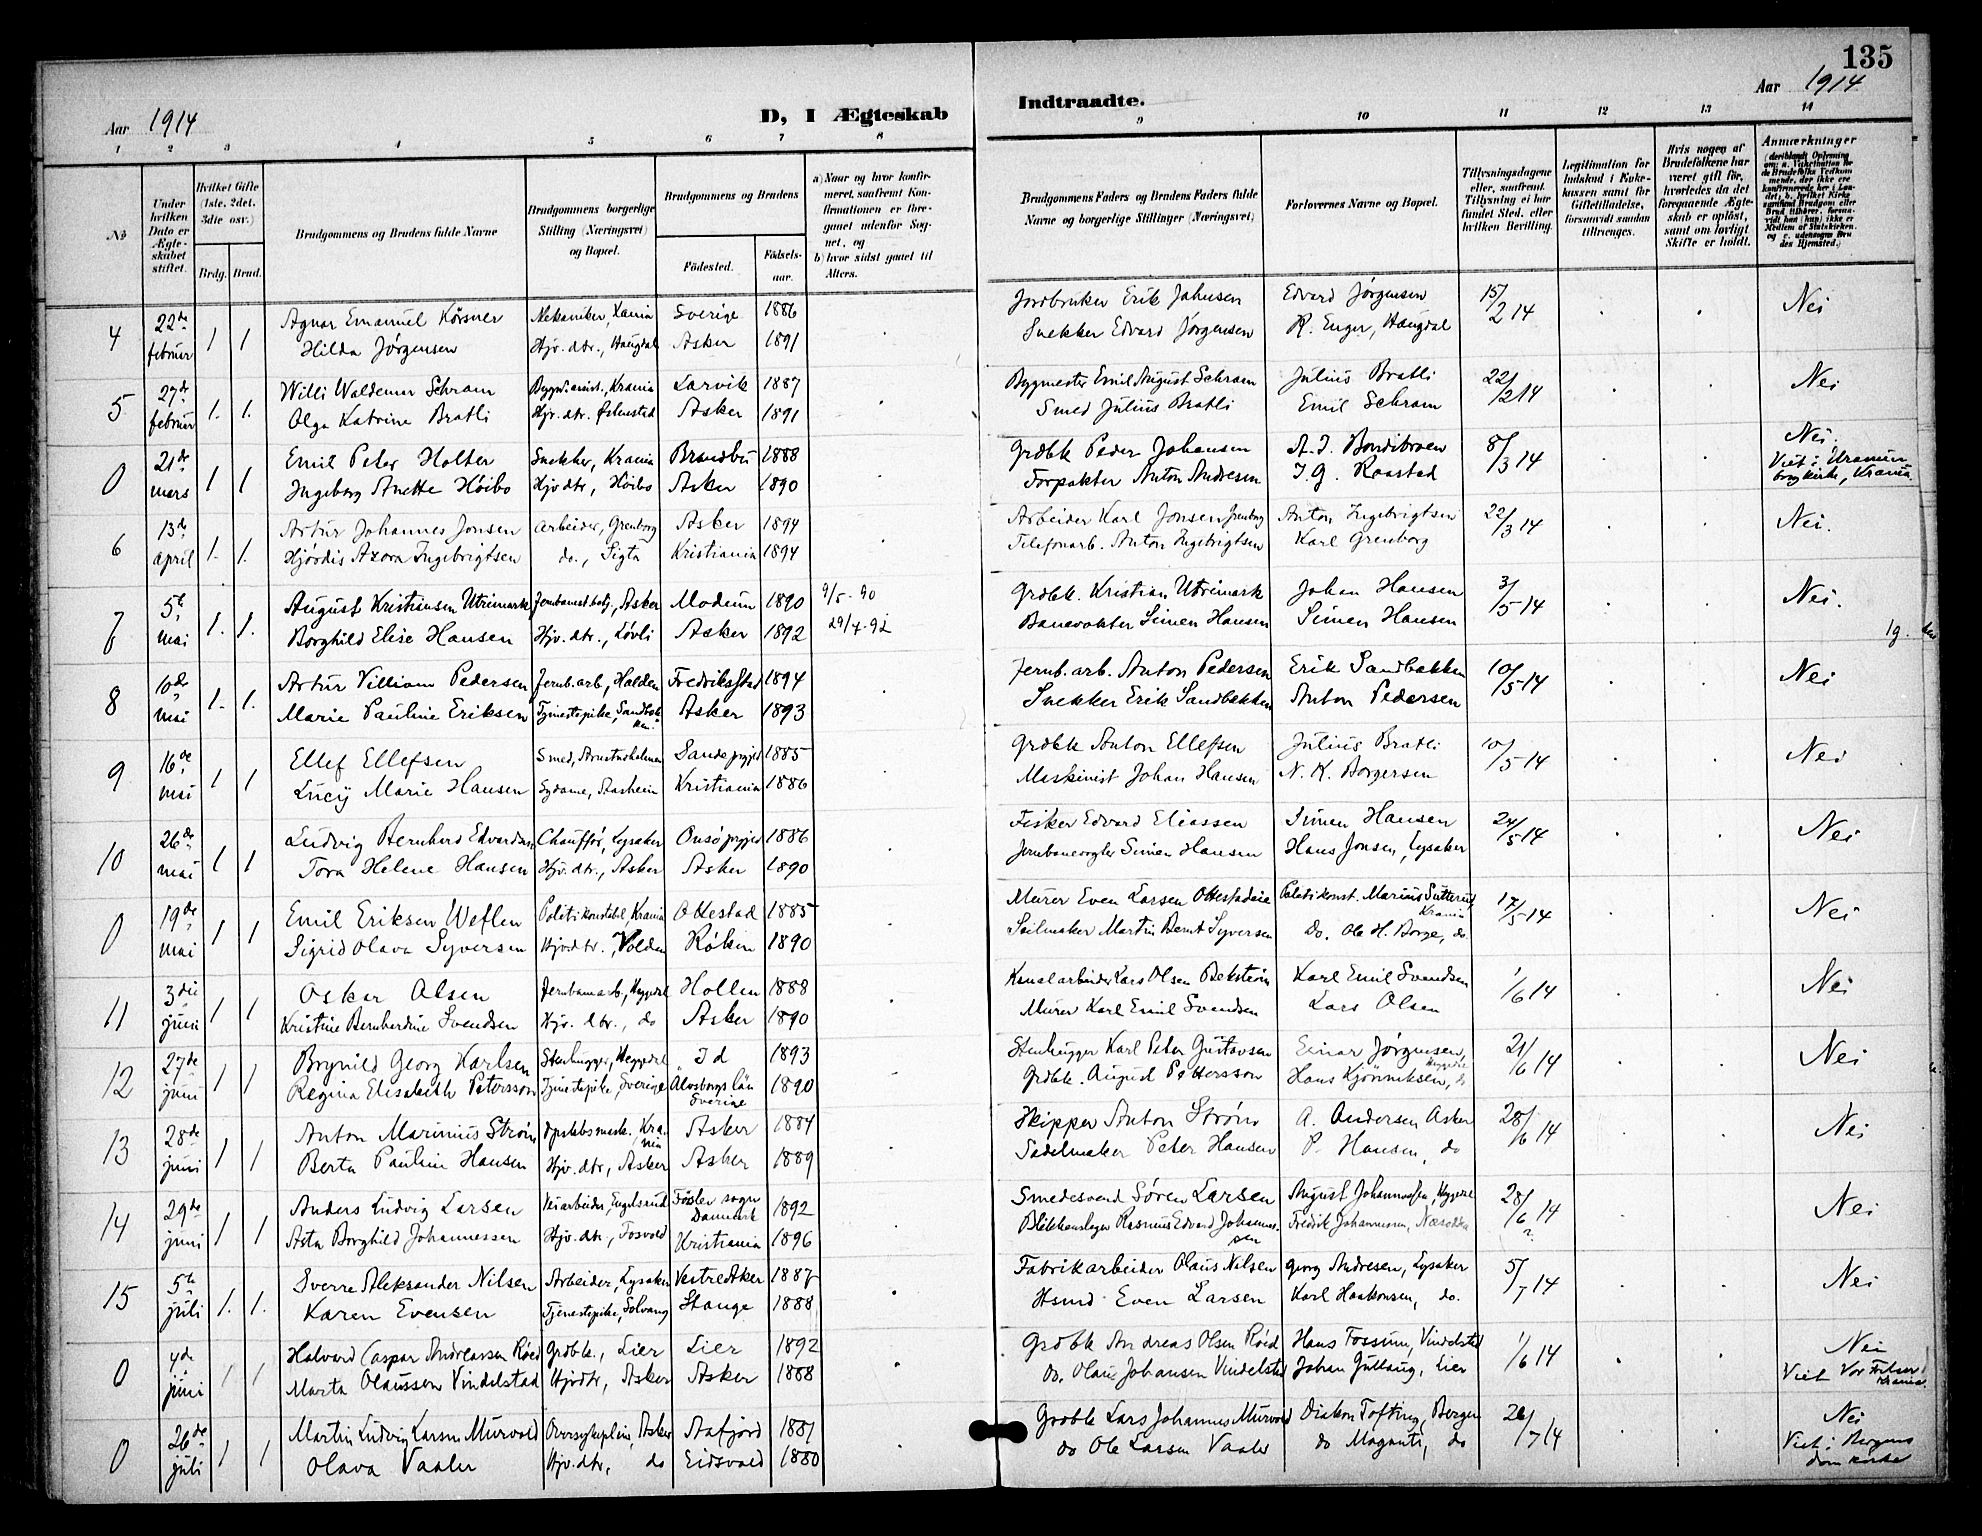 135
Aar 1914
D, I Ægteskab Indtraadte.
Aar 1914
1 2 3 4 5 6 7 8 9 10 11 12 13 14
No
Under hvilken Dato er Ægteskabet stiftet.
Hvilket Gifte (1ste, 2det, 3die osv.)
Brdg. Brud.
Brudgommens og Brudens fulde Navne
Brudgommens borgerlige Stilling (Næringsvei) og Bopæl.
Brudgommens og Brudens
Fødested. Fødselsaar.
a) Naar og hvor konfirmeret, saafremt Konfirmationen er foregaaet udenfor Sognet, og
b) hvor sidst gaaet til Alters.
Brudgommens Faders og Brudens Faders fulde Navne og borgerlige Stillinger (Næringsvei)
Forlovernes Navne og Bopæl.
Tillysningsdagene eller, saafremt Tillysning ei har fundet Sted, efter hvilken Bevilling.
Legitimation for Indskud i Enkekassen samt for Giftetilladelse, forsaavidt saadan tiltrænges.
Hvis nogen af Brudefolkene har været gift før, hvorledes da det foregaaende Ægteskab er opløst, samt om lovligt Skifte er holdt.
Anmærkninger
4 22de februar 1 1 Agnar Emanuel Kørsner Mekaniker, Xania Sverige 1886 Jordbruker Erik Johnsen Edvard Jørgensen 15/2 14 Nei
Hilda Jørgensen Hjv. dtr., Haugdal Asker 1891 Snekker Edvard Jørgensen R. Enger, Haugdal
5 27de februar 1. 1. Willi Waldemar Schram Krania Larvik 1887 Bygmester Emil August Schram Julius Bratli 22/2 14 Nei
Olga Katrine Bratli Hjv. dtr. Asker 1891 Smed Julius Bratli Emil Schram
0 21de mars 1 1 Emil Peter Holter Snekker, Krania Brandbu 1888 Grdbk Peder Johansen A. J. Bondibraen 8/3 14 Nei.
Ingeborg Anette Høibo Hjvdtr, Høibo Asker 1890 Forpakter Anton Andresen J. G. Raastad Viet i Uranienborg kirke, Krania.
6 13de april 1. 1. Artur Johannes Jonsen Arbeider, Grenborg Asker 1894 Arbeider Karl Jonsen Grenborg Anton Ingebrigtsen 22/3 14 Nei.
Hjørdis Azora Ingebrigtsen do., Sigta Kristiania 1894 Telefonarb. Anton Ingebrigtsen Karl Grenborg
7 5te mai 1. 1. August Kristiansen Utrimark Jernbanebetj., Asker Modum 1890 9/5 - 90 Grdbk. Kristian Utrimark Johan Hansen 3/5 14 Nei.
Borghild Elise Hansen Hjv. dtr., Løvli Asker 1892 29/4 - 92 Banevokter Simen Hansen Simen Hansen
8 10de mai 1. 1. Artur Villiam Pedersen Jernb. arb, Halden Fredriksstad 1894 Jernb. arb. Anton Pedersen Erik Sandbakken 10/5 14 Nei
Marie Pauline Eriksen Tjenestepike, Sandbakken Asker 1893 Snekker Erik Sandbakken Anton Pedersen
9 16de mai 1 1 Ellef Ellefsen Smed, Sande prgjeld 1885 Grdbk Anton Ellefsen Julius Bratli 10/5 14 Nei
Lucy Marie Hansen Sydame, Aasheim Kristiania 1886 Maskinist Johan Hansen N. K. Borgersen
10 26de mai 1 1 Ludvig Bernhard Edvardsen Chauffør, Lysaker Onsø prgjeld 1886 Fisker Edvard Eliassen Simen Hansen 24/5 14 Nei
Tora Helene Hansen Hjv. dtr., Asker Asker 1890 Jernbanevogter Simen Hansen Hans Jonsen, Lysaker
0 19de mai 1 1 Emil Eriksen Weflen Politikonstabel Krania Ottestad 1885 Murer Even Larsen Ottestadeie Politikonst. Marius Sutterud, Krania 17/5 14 Nei
Sigrid Olava Syversen Hjvdtr., Volden Røken 1890 Seilmaker Martin Bernt Syversen do. Ole H. Borge, do.
11 3die juni 1 1 Oskar Olsen Jernbanearb., Heggedal Hollen 1888 Kanalarbeider Lars Olsen Bekstrøm Karl Emil Svendsen 1/6 14 Nei
Kristine Bernhardine Svendsen Hjv. dtr., do Asker 1890 Murer Karl Emil Svendsen Lars Olsen
12 27de juni 1 1 Brynild Georg Karlsen Stenhugger, Heggedal Id 1893 Stenhugger Karl Peter Gustavsen Einar Jørgensen, Heggedal 21/6 14 Nei
Regina Elisabeth Petersson Tjenestepike, Sverige Alvsborgs län Sverige 1890 Grdbk. August Pettersson Hans Kjønniksen, do
13 28de juni 1 1 Anton Marinius Strøm Opsi­dsmask., Krania Asker 1884 Skipper Anton Strøm A. Andersen Asker 28/6 14 Nei
Berta Pauline Hansen Hjv. dtr, Asker Asker 1889 Sadelmaker Peter Hansen P. Hansen, do
14 29de juni 1 1 Anders Ludvig Larsen Veiarbeider, Engelsrud sogn Danmark 1892 Smedesvend Søren Larsen August Johannessen, Heggedal 28/6 14 Nei
Asta Borghild Johannessen Hjv. dtr, Fosvold Kristiania 1896 Blikkenslager Rasmus Edvard Johannessen Fredrik Johannesen, Næsodden
15 5te juli 1. 1. Sverre Aleksander Nilsen Arbeider, Lysaker Vestre Aker 1887 Fabrikarbeider Olaus Nilsen Georg Andresen, Lysaker 5/7 14 Nei
Karen Evensen Tjenestepike, Solvang Stange 1888 Hsmd Even Larsen Karl Haakonsen, do.
0 4de juni 1 1 Halvard Caspar Andreassen Røed Grdbk., Lier Lier 1892 Grdbk Andreas Olsen Røed Hans Fossum, Vindelstad 1/6 14 Nei
Marta Olaussen Vindelstad Hjvdtr, Asker Asker 1888 do. Olaus Johansen Vindelstad Johan Gullaug, Lier Viet Vor Frelser Krania.
0 26de juli 1 1 Martin Ludvig Larsen Murvold Oversykepleier, Asker Aafjord 1881 Grdbk Lars Johannes Murvold Diakon Tofting, Bergen 26/7 14 Nei
Olava Vaaler Hjv. dtr, do Eidsvold 1880 do Ole Larsen Vaaler do , do Viet i Bergens domkirke